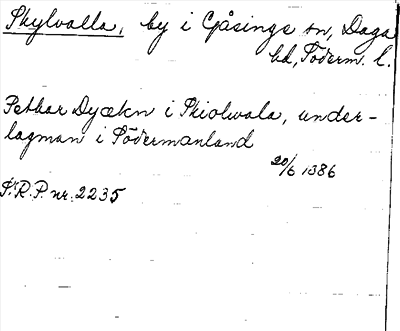 Skylvalla, by i Gåsinge sn, Daga
hd, Söderm. l.
Pethar Dyækn i Skiolwala, under-
lagman i Södermanland
20/6 1386
Sv. R. P. nr. 2235